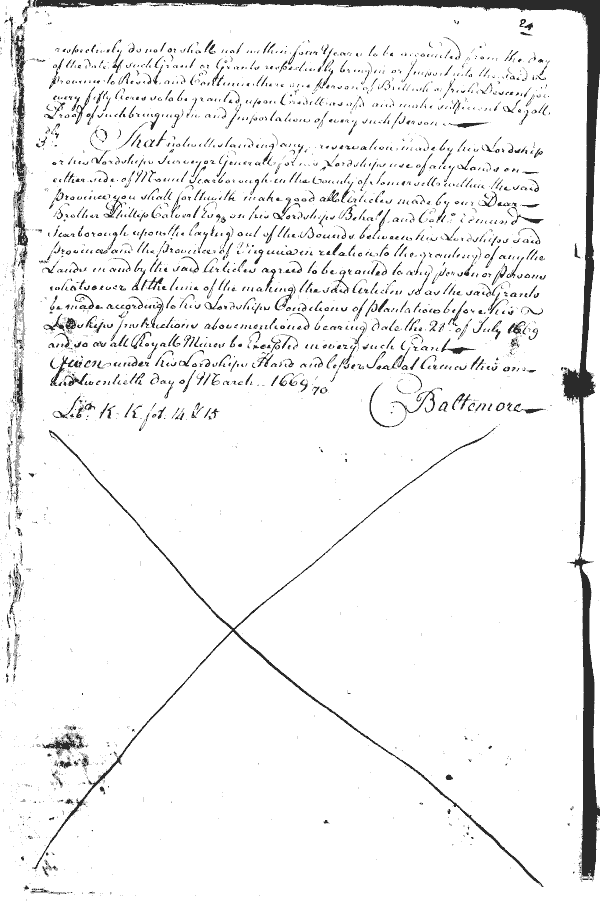 24
respectively do not or shall not within four Years to be accounted from the day
of the date of such Grant or Grants respectively bring in or Import into the said
Province to Reside and Continue there one person of Brittish or Irish Descent for
every fifty Acres so to be granted upon Credit as afsd. and make sufficient Legall
Proof of such bringing in and Importations of every such person
That notwithstanding any reservation made by his Lordship
or his Lordships Surveyor Generall for his Lordships use of any Lands on
either side of Mount Scarborough in the County of Somersett within the said
Province you shall forthwith make good all Articles made by our Dear
Brother Phillip Calvert Esqr. on his Lordships Behalf and Coll. Edmund
Scarborough upon the laying out of the Bounds between his Lordships said
Province and the Province of Virginia in relation to the granting of any the
Lands in and by the said Articles agreed to be granted to any person or persons
whatsoever at the time of the making the said Articles so as the said Grants
be made according to his Lordships Conditions of Plantation before his
Lordships Instructions abovementioned bearing date the of July 1669
and so as all Royall Mines be Excepted in every such Grant
Given under his Lordships Hand and lesser Seal at Arms this one
and twentieth Day of March 1669/70
Baltemore
Lib. K: K fol. 14 & 15